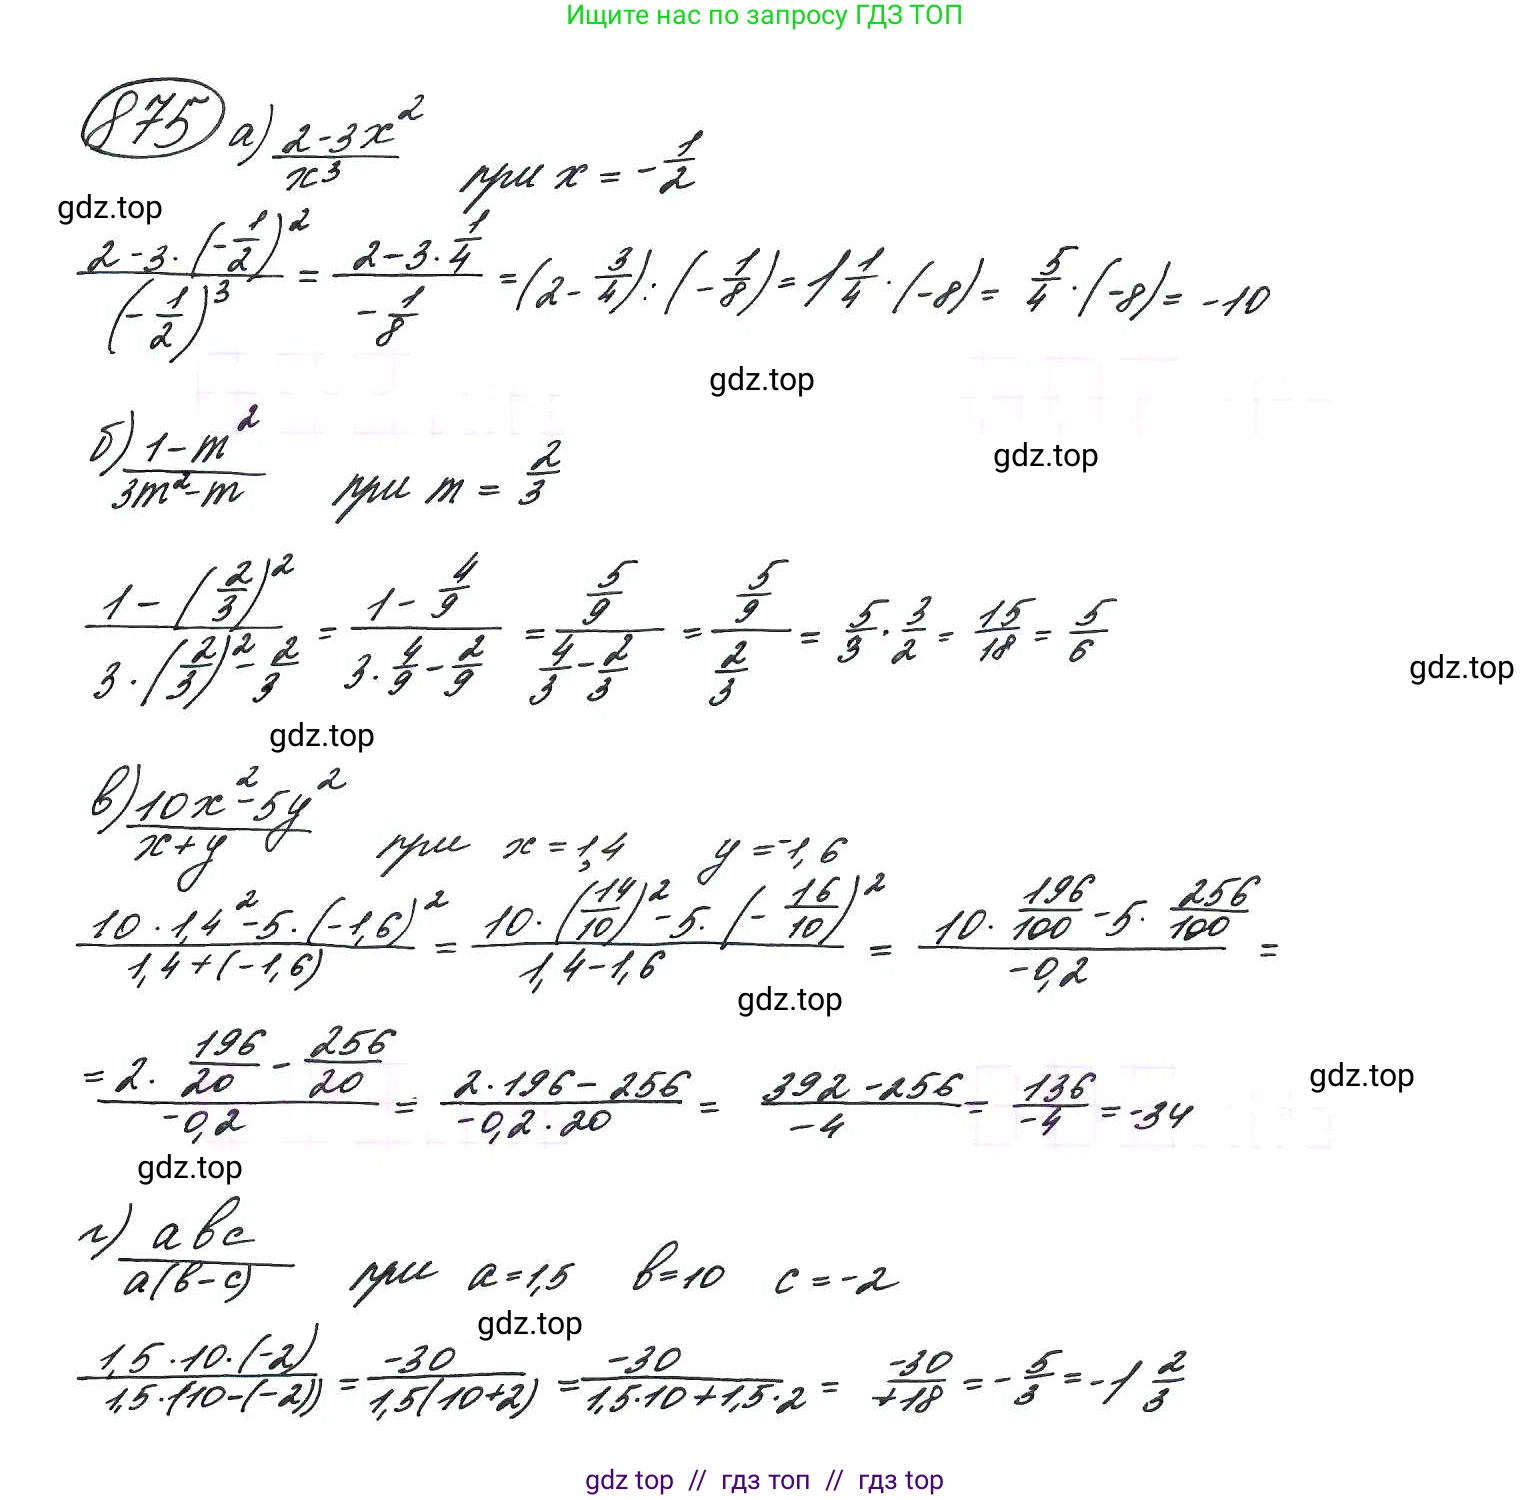 Ищите нас по запросу ГДЗ ТОП
875 а) (2-3x²)/x³ при x = -1/2
gdz.top
(2-3·(-1/2)²)/(-1/2)³ = (2-3·1/4)/(-1/8) = (2-3/4):(-1/8) = 1 1/4·(-8) = 5/4·(-8) = -10
gdz.top
б) (1-m²)/(3m²-m) при m = 2/3
gdz.top
(1-(2/3)²)/(3·(2/3)²-2/3) = (1-4/9)/(3·4/9-2/9) = (5/9)/(4/3-2/3) = (5/9)/(2/3) = 5/9·3/2 = 15/18 = 5/6
gdz.top
gdz.top
в) (10x²-5y²)/(x+y) при x=1,4 y=-1,6
(10·1,4²-5·(-1,6)²)/(1,4+(-1,6)) = (10·(14/10)²-5·(-16/10)²)/(1,4-1,6) = (10·196/100-5·256/100)/(-0,2) =
gdz.top
= (2·196/20-256/20)/(-0,2) = (2·196-256)/(-0,2·20) = (392-256)/(-4) = 136/(-4) = -34
gdz.top
gdz.top
г) авс/(а(в-с)) при а=1,5 в=10 с=-2
gdz.top
(1,5·10·(-2))/(1,5·(10-(-2))) = -30/(1,5(10+2)) = -30/(1,5·10+1,5·2) = -30/(+18) = -5/3 = -1 2/3
gdz top // гдз топ // гдз top